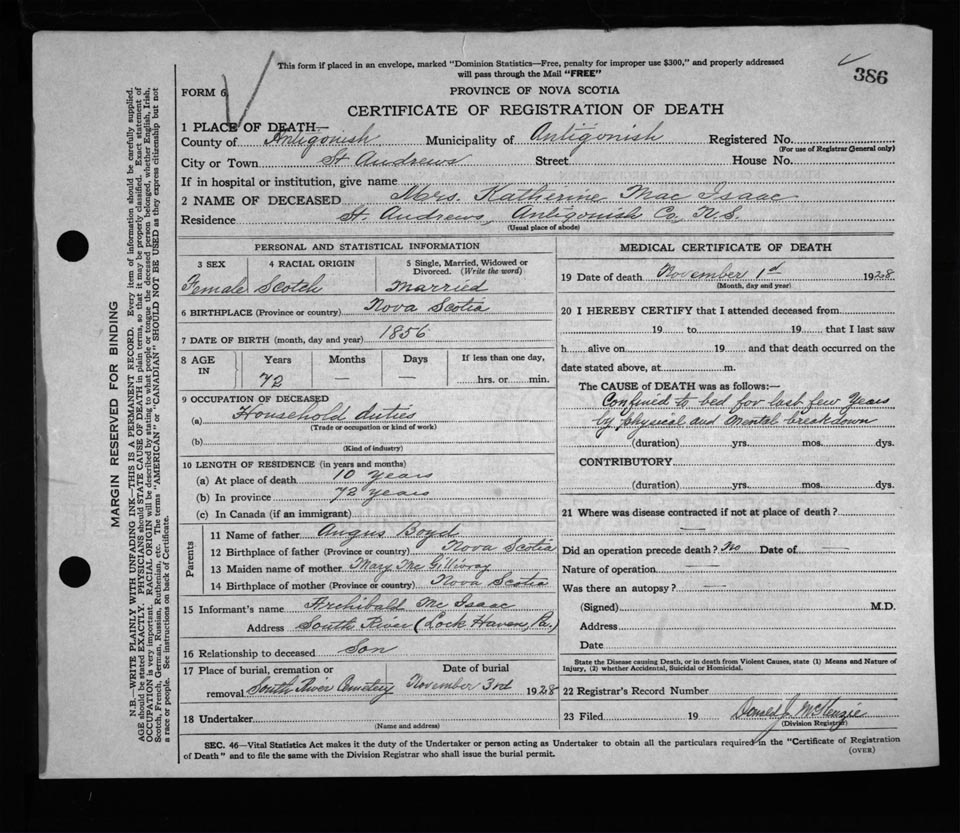 This form if placed in an envelope, marked "Dominion Statistics—Free, penalty for improper use $300," and properly addressed
will pass through the Mail "FREE"
386
FORM 6
PROVINCE OF NOVA SCOTIA
CERTIFICATE OF REGISTRATION OF DEATH
1 PLACE OF DEATH—
County of Antigonish Municipality of Antigonish Registered No.
(For use of Registrar General only)
City or Town St Andrews Street House No.
If in hospital or institution, give name
2 NAME OF DECEASED Mrs. Katherine Mac Isaac
Residence St. Andrews, Antigonish Co, N.S.
(Usual place of abode)
PERSONAL AND STATISTICAL INFORMATION
3 SEX 4 RACIAL ORIGIN 5 Single, Married, Widowed or
Divorced. (Write the word)
Female Scotch Married
6 BIRTHPLACE (Province or country) Nova Scotia
7 DATE OF BIRTH (month, day and year) 1856
8 AGE IN Years Months Days If less than one day,
72 — — hrs. or min.
9 OCCUPATION OF DECEASED
(a) Household duties
(Trade or occupation or kind of work)
(b)
(Kind of industry)
10 LENGTH OF RESIDENCE (in years and months)
(a) At place of death 10 years
(b) In province 72 years
(c) In Canada (if an immigrant)
Parents
11 Name of father Angus Boyd
12 Birthplace of father (Province or country) Nova Scotia
13 Maiden name of mother Mary Mc Gillivray
14 Birthplace of mother (Province or country) Nova Scotia
15 Informant's name Archibald Mc Isaac
Address South River (Lock Haven, Pa.)
16 Relationship to deceased Son
17 Place of burial, cremation or Date of burial
removal South River Cemetery November 3rd 1928
18 Undertaker
(Name and address)
MEDICAL CERTIFICATE OF DEATH
19 Date of death November 1st 1928
(Month, day and year)
20 I HEREBY CERTIFY that I attended deceased from
19 to 19 that I last saw
h alive on 19 and that death occurred on the
date stated above, at m.
The CAUSE of DEATH was as follows:—
Confined to bed for last few years
by physical and mental breakdown
(duration) yrs. mos. dys.
CONTRIBUTORY
(duration) yrs. mos. dys.
21 Where was disease contracted if not at place of death?
—
Did an operation precede death? No Date of —
Nature of operation —
Was there an autopsy? —
(Signed) M.D.
Address
Date
State the Disease causing Death, or in death from Violent Causes, state (1) Means and Nature of
Injury, (2) whether Accidental, Suicidal or Homicidal.
22 Registrar's Record Number
23 Filed 19 Donald J. McKenzie
(Division Registrar)
SEC. 46—Vital Statistics Act makes it the duty of the Undertaker or person acting as Undertaker to obtain all the particulars required in the "Certificate of Registration
of Death" and to file the same with the Division Registrar who shall issue the burial permit.
(OVER)
MARGIN RESERVED FOR BINDING
N.B.—WRITE PLAINLY WITH UNFADING INK—THIS IS A PERMANENT RECORD. Every item of information should be carefully supplied.
AGE should be stated EXACTLY. PHYSICIANS should STATE CAUSE OF DEATH in plain terms, so that it may be properly classified. Exact statement of
OCCUPATION is very important. RACIAL ORIGIN will be described by stating to what people or tongue the deceased person belonged, whether English, Irish,
Scotch, French, German, Russian, Ruthenian, etc. The terms "AMERICAN" or "CANADIAN" SHOULD NOT BE USED as they express citizenship but not
a race or people. See instructions on back of Certificate.